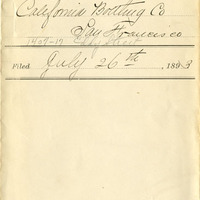 California Bottling Co
San Francisco
1407-17 Eddy Street
Filed July 26th, 1893